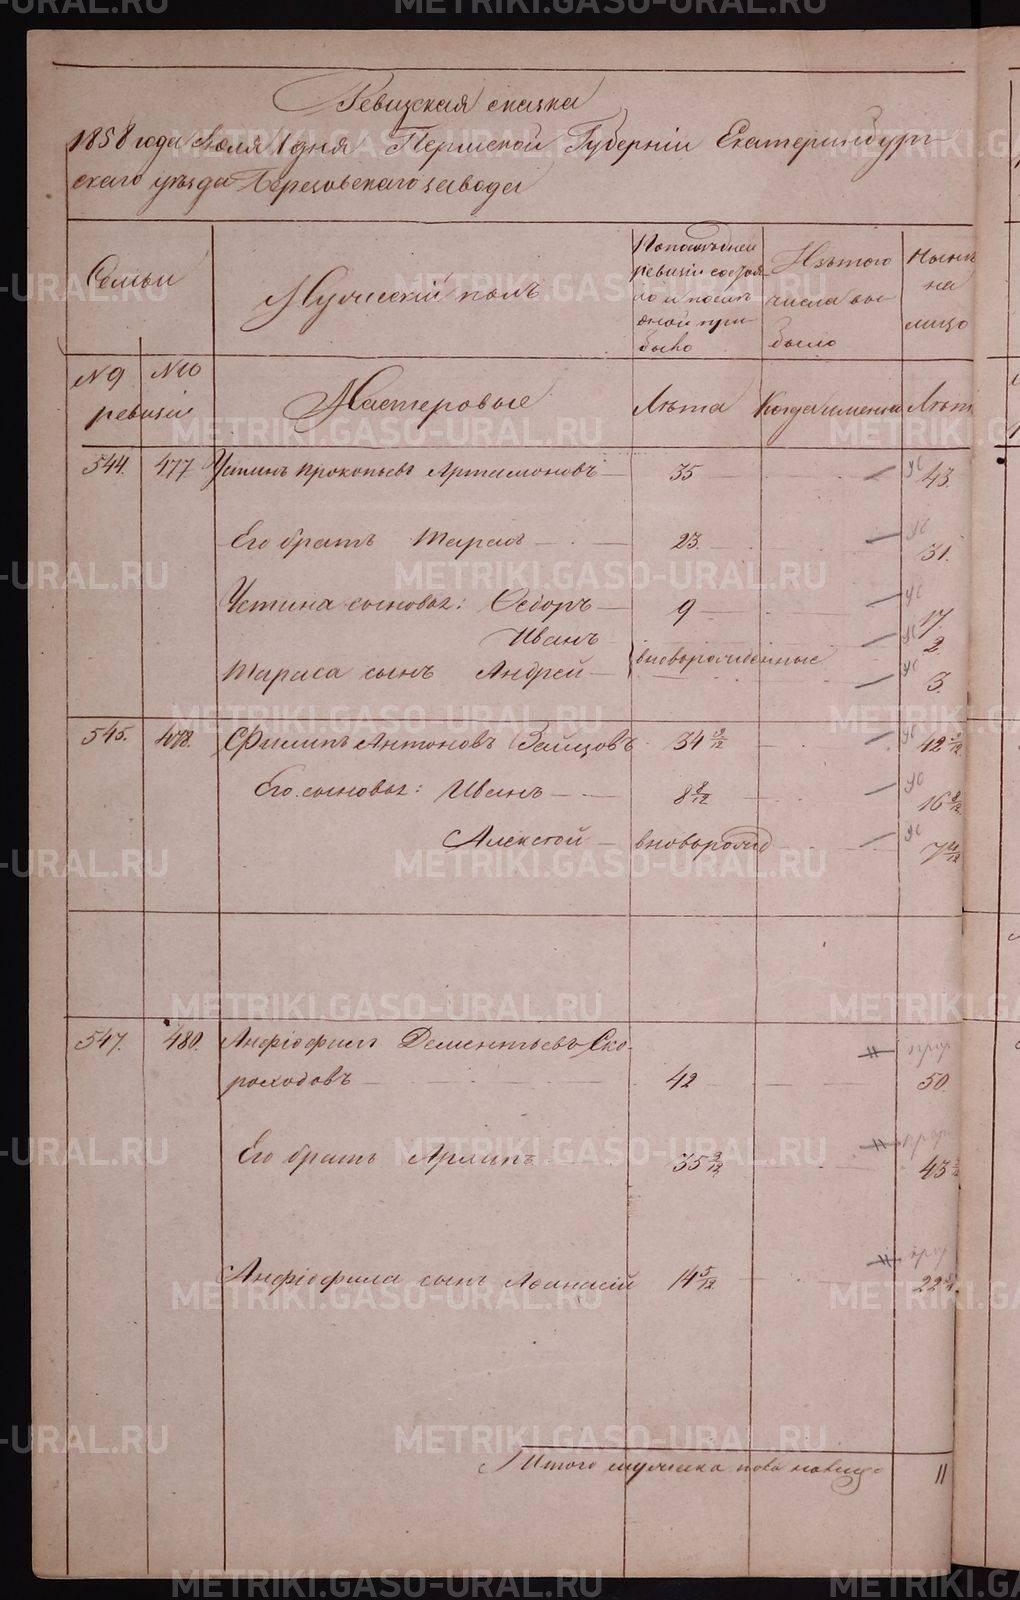 Ревизская сказка
1858 года Июля 1 дня Пермской Губерніи Екатеринбург-
скаго уѣзда Березовскаго завода
Семьи
Мужескій полъ
По послѣдней
ревизіи состоя-
ло и послѣ
оной при-
было
Изъ того
числа вы-
было
Нынѣ
на
лицо
№ 9 № 10
ревизіи
Мастеровые
Лѣта
Когда именно
Лѣта
544. 477. Устинъ Прокопьевъ Артамоновъ 35 43.
Его братъ Тарасъ 23. 31.
Устина сыновья: Ѳедоръ 9 17.
Иванъ 2.
вноворожденные
Тараса сынъ Андрей 3.
545. 478. Филипъ Антоновъ Зайцовъ 34 9/12 42 9/12
Его сыновья: Иванъ 8 8/12 16 8/12
Алексѣй вноворожд 7
547. 480. Анфіофилъ Дементьевъ Ско-
роходовъ 42 50.
Его братъ Архипъ 35 9/12 43
Анфіофила сынъ Афанасій 14 5/12 22
Итого мужеска пола налицо 11
METRIKI.GASO-URAL.RU